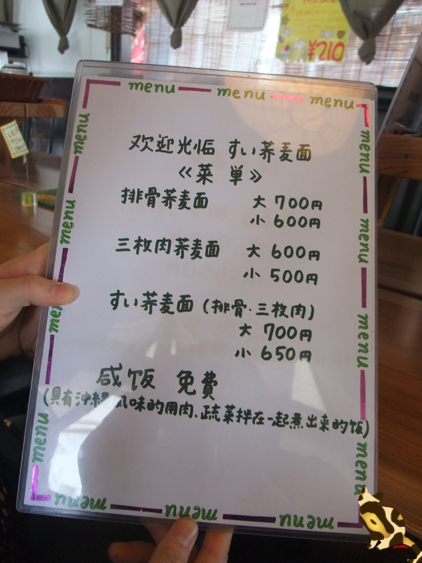 ¥210
menu menu menu
欢迎光临 すい荞麦面
《菜 単》
排骨荞麦面 大 700円
小 600円
三枚肉荞麦面 大 600円
小 500円
すい荞麦面 (排骨·三枚肉)
大 700円
小 650円
咸饭 免費
(具有沖縄風味的用肉.蔬菜拌在一起煮出来的饭)
menu
menu
menu
menu
menu
menu
menu
menu
menu menu menu